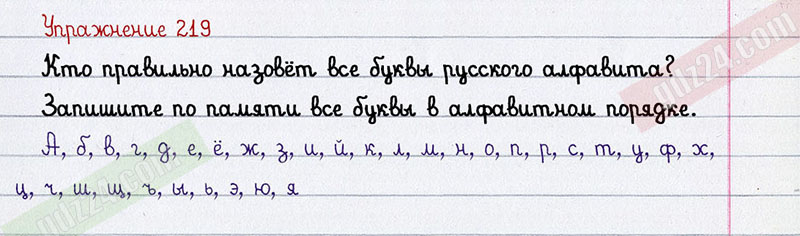 Упражнение 219
Кто правильно назовёт все буквы русского алфавита?
Запишите по памяти все буквы в алфавитном порядке.
А, б, в, г, д, е, ё, ж, з, и, й, к, л, м, н, о, п, р, с, т, у, ф, х,
ц, ч, ш, щ, ъ, ы, ь, э, ю, я
gdz24.com
gdz24.com